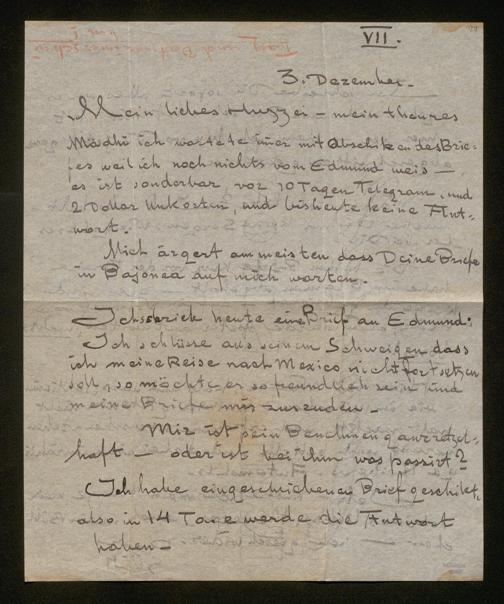 VII.
3. Dezember.
Mein liebes Huzzei – mein theures
Madhi ich wartete imer mit Abschiken des Brie-
fes weil ich noch nichts vom Edmund weis –
es ist sonderbar, vor 10 Tagen Telegram, und
2 Dollar Unkosten, und bis heute keine Ant-
wort.
Mich ärgert am meisten dass Deine Briefe
in Bajonea auf mich warten.
Ich schrieb heute eine Brief an Edmund:
Ich schlüsse aus seinem Schweigen dass
ich meine Reise nach Mexico nicht fortsetzen
soll, so möchte er so freundlich sein und
meine Briefe mir zusenden –
Mir ist sein Benehmen ganz rätzel-
haft – oder ist bei ihm was passirt?
Ich habe eingeschriebenen Brief geschikt,
also in 14 Tage werde die Antwort
haben –